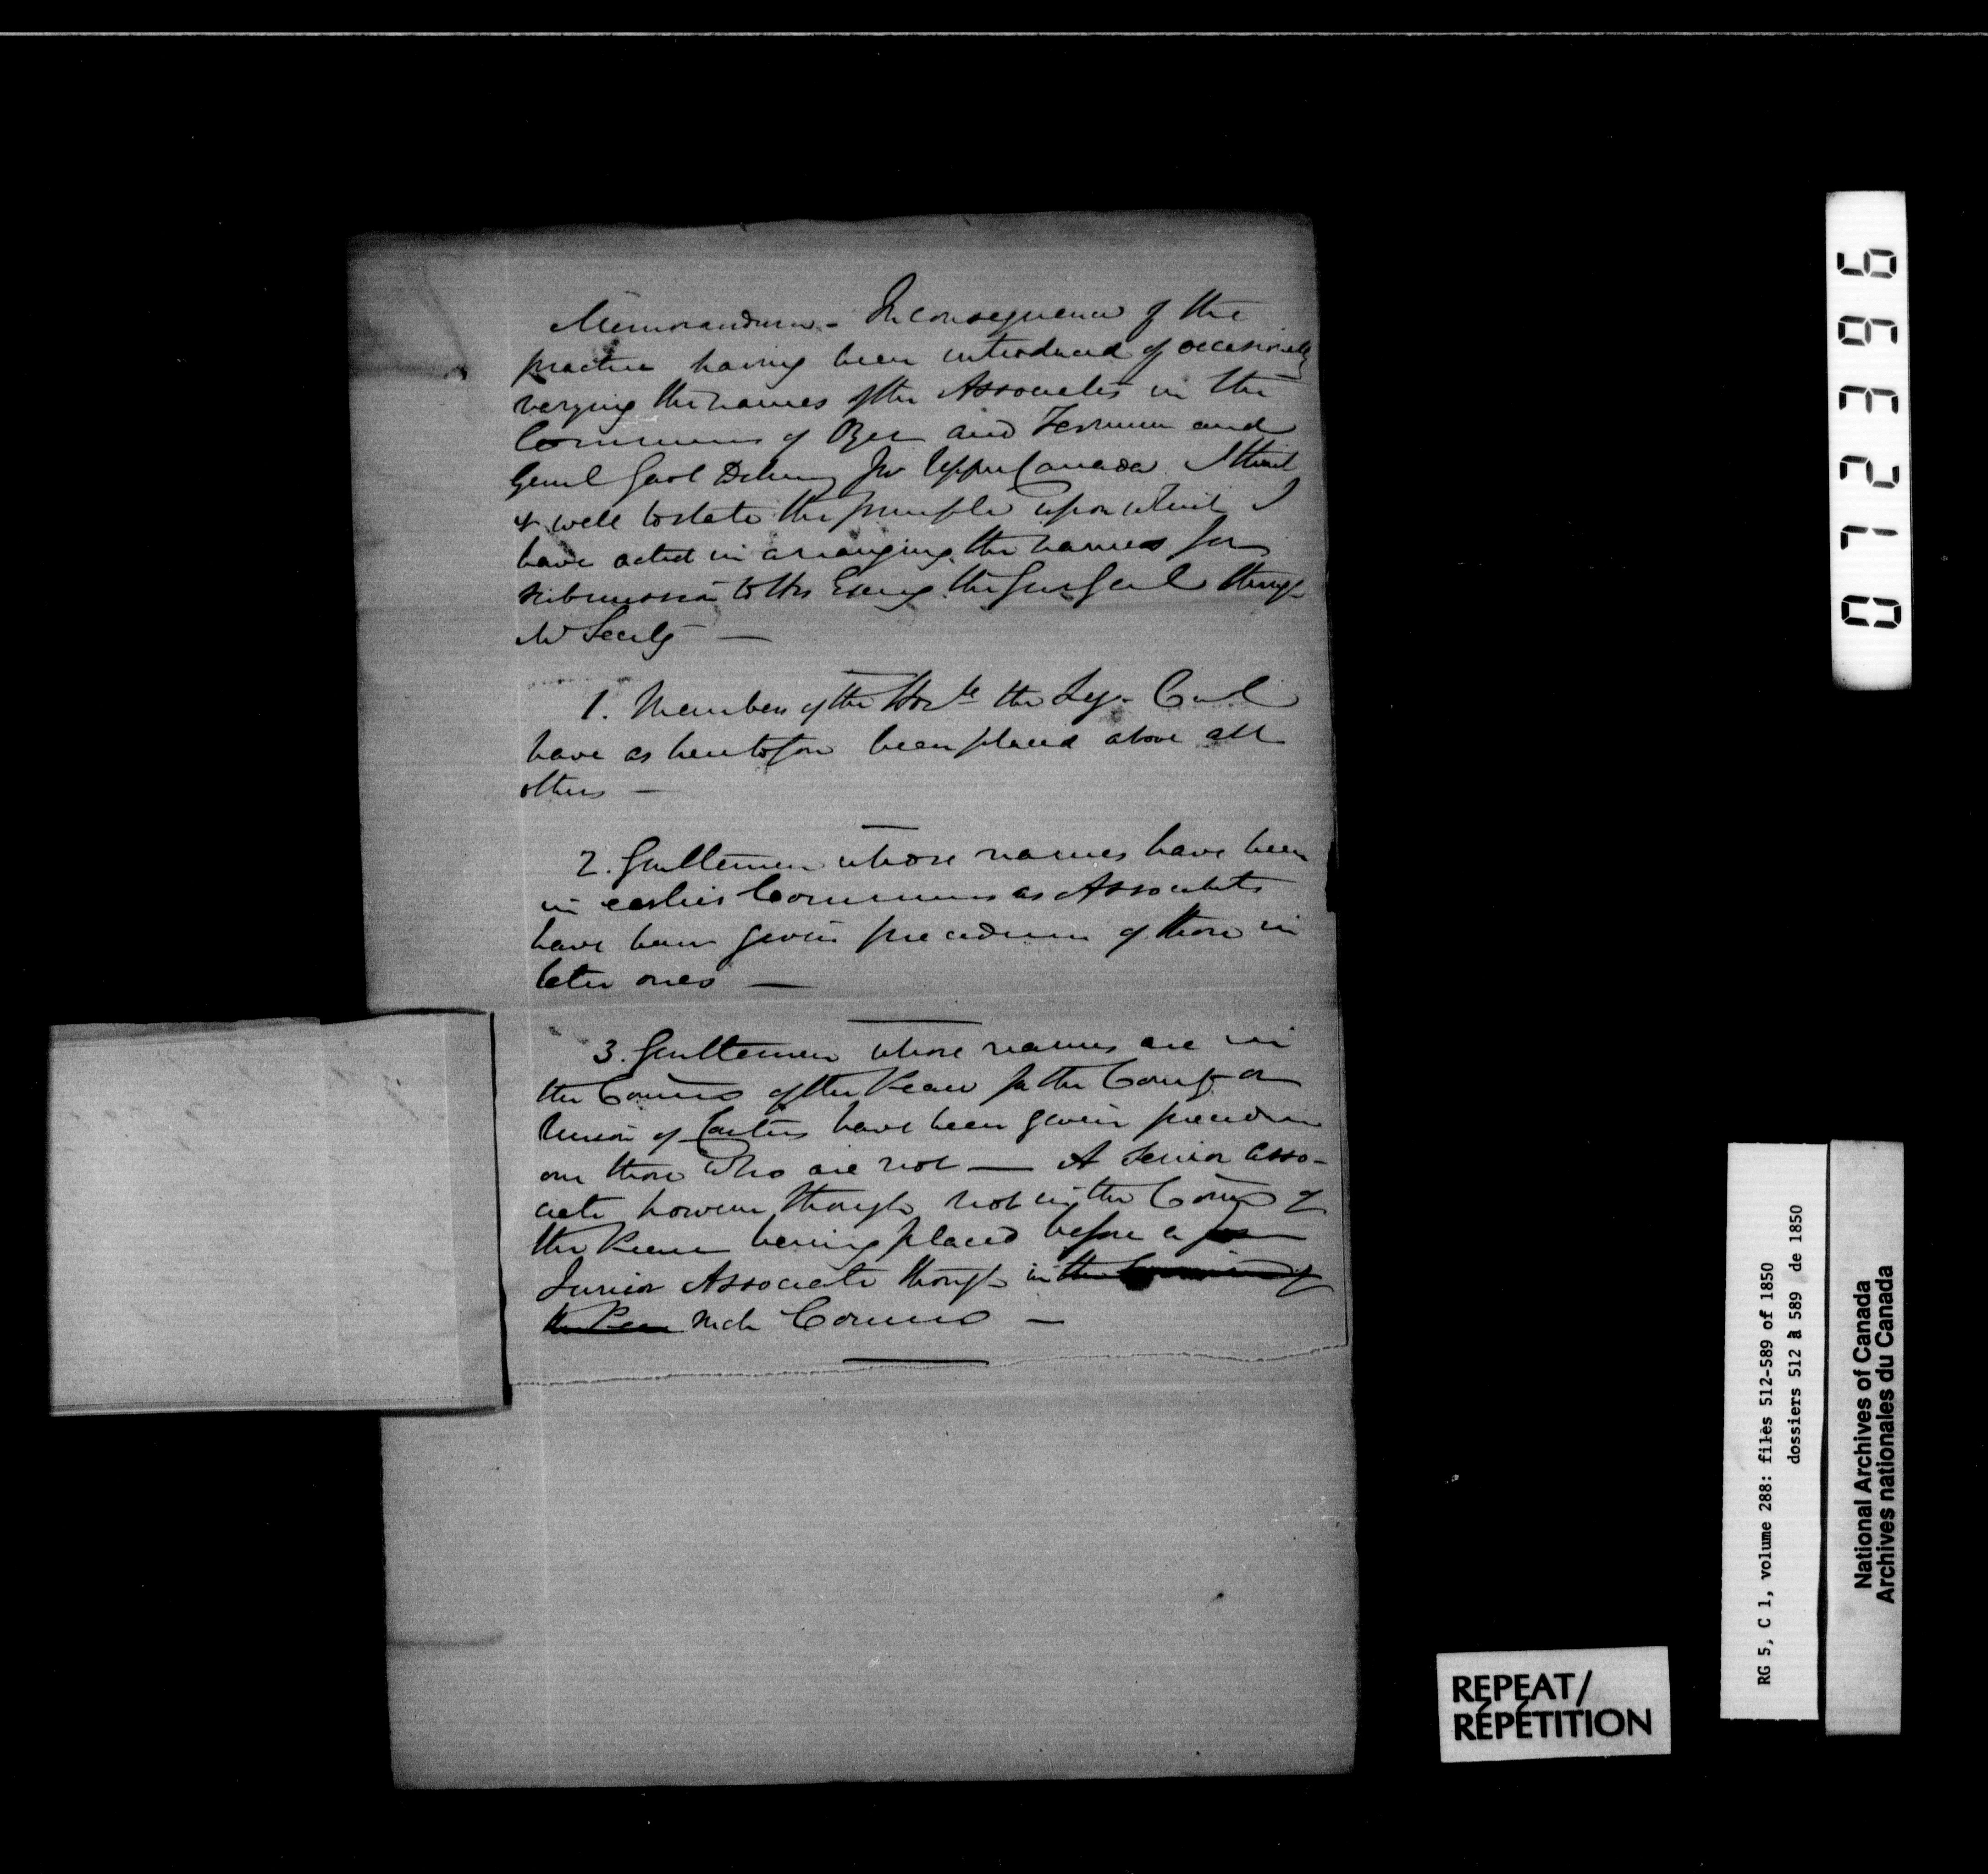 Memorandum - In consequence of the
practice having been introduced of occasionally
varying the names of the Associates in the
Commissions of Oyer and Terminer and
Genl Gaol Delivery for Upper Canada I think
it well to state the principle upon which I
have acted in arranging the names for
submission to His Excy the Gov Genl through
Mr Secty —
1. Members of the Honble the Leg. Cncl
have as heretofore been placed above all
others —
2. Gentlemen whose names have been
in earlier Commissions as Associates
have been given precedence of those in
later ones —
3. Gentlemen whose names are in
the Comms of the Peace for the County or
Union of Counties have been given precedence
over those who are not — A Senior Asso-
ciate however though not in the Comms of
the Peace being placed before a
Junior Associate though in the Commission of
the Peace such Comms —
0712396
RG 5, C 1, volume 288: files 512-589 of 1850
dossiers 512 à 589 de 1850
National Archives of Canada
Archives nationales du Canada
REPEAT/
RÉPÉTITION